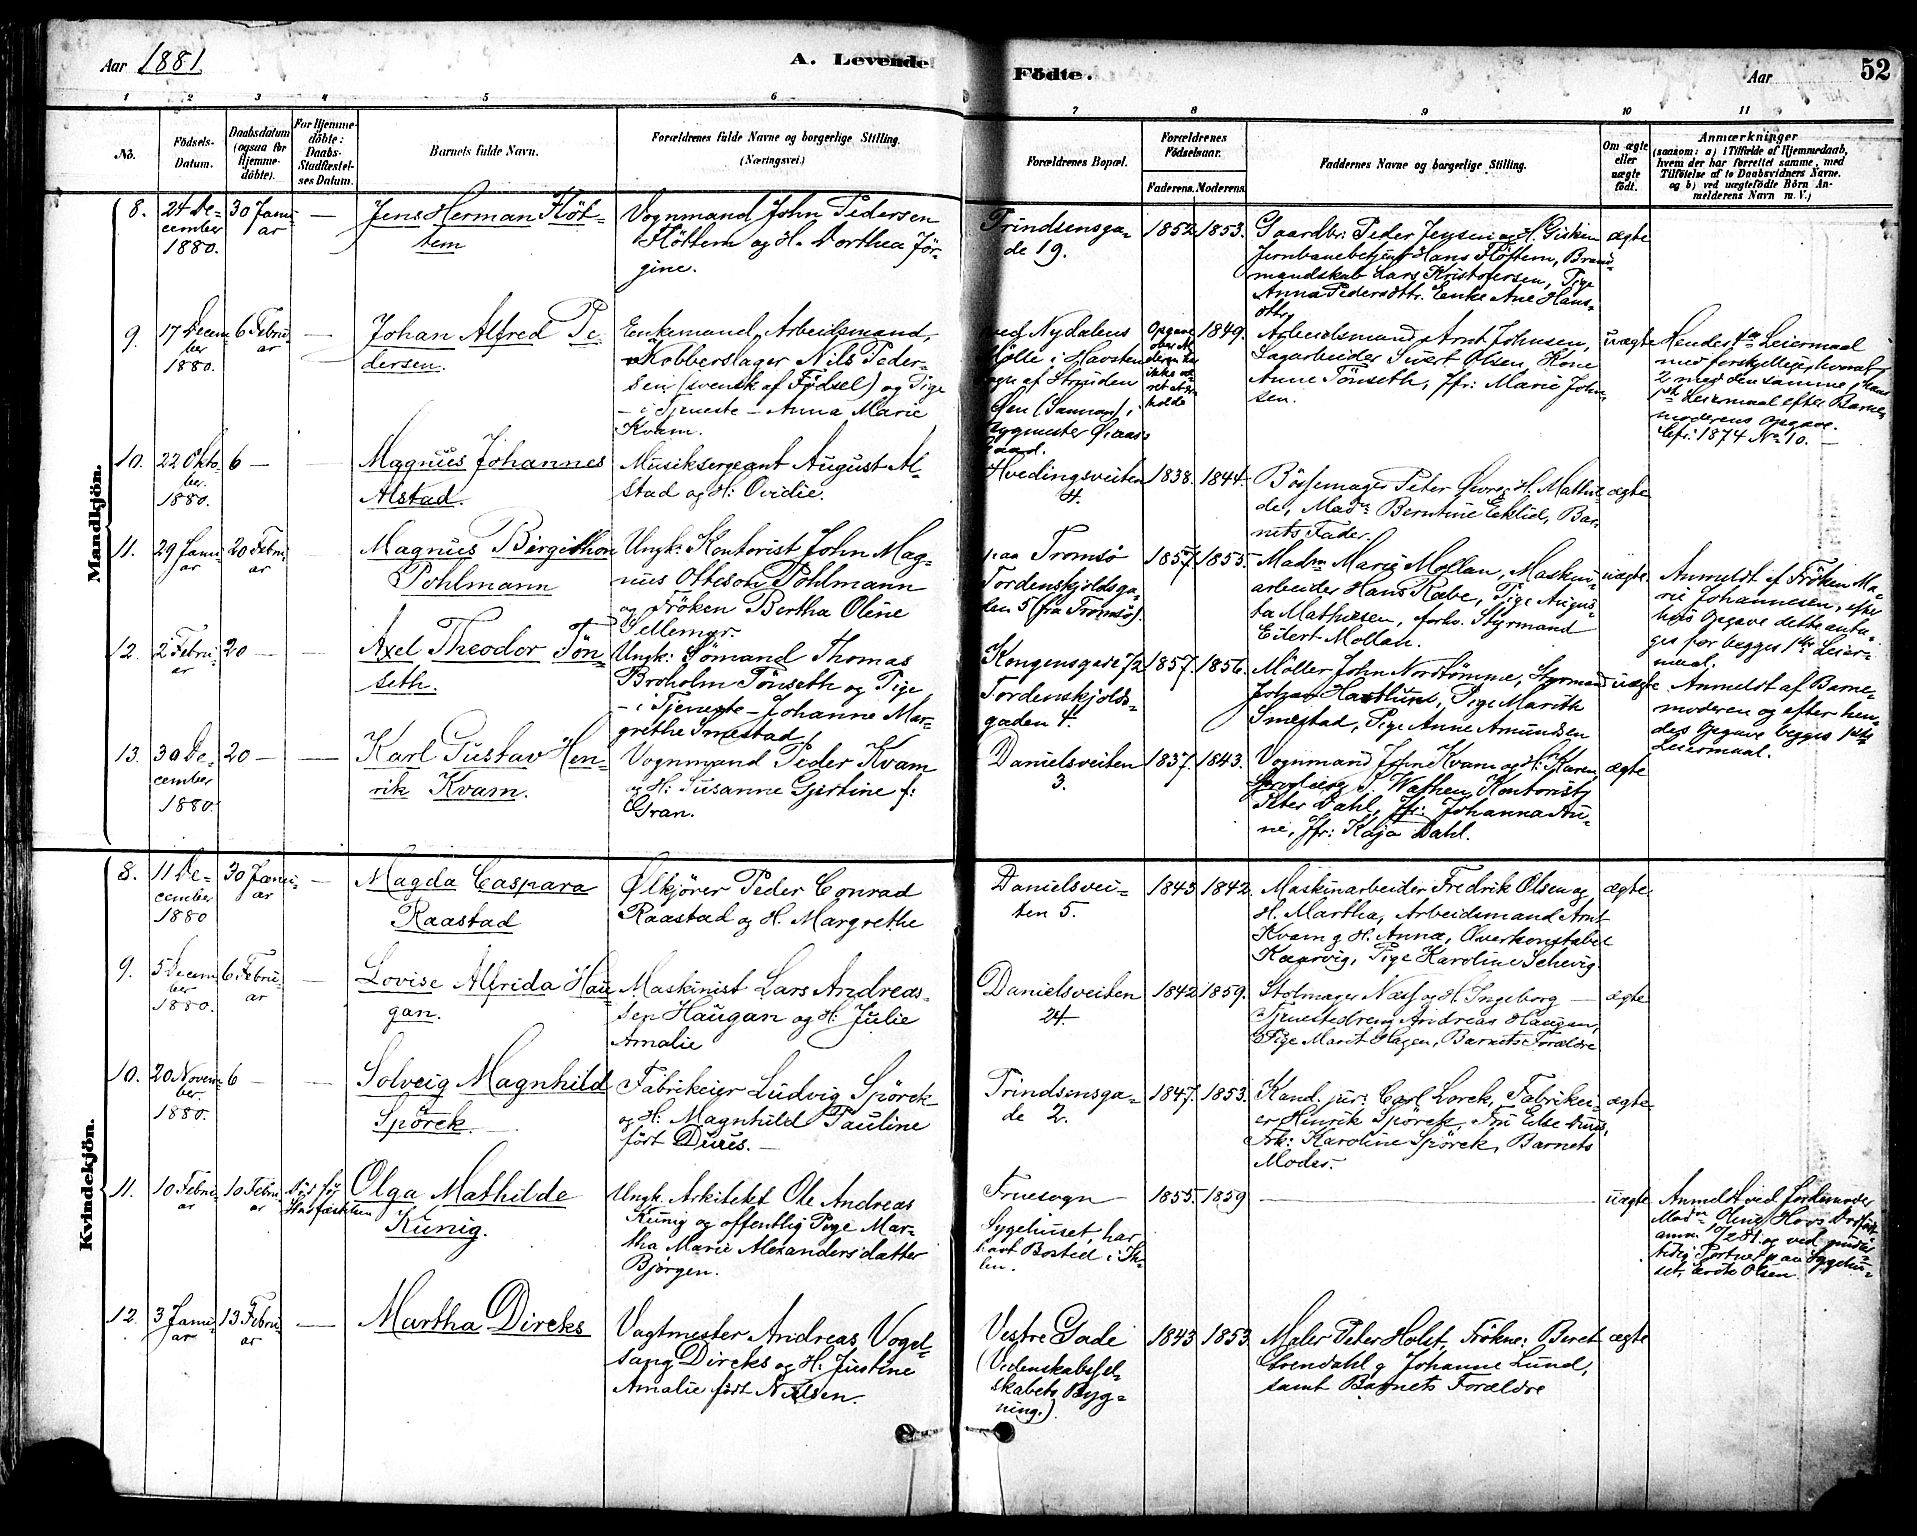 Aar 1881.
A. Levende
Fødte.
Aar
52
1 2 3 4 5 6 7 8 9 10 11
No.
Födsels-
Datum.
Daabsdatum
(ogsaa for
Hjemme-
döbte).
For Hjemme-
döbte:
Daabs-
Stadfæstel-
ses Datum.
Barnets fulde Navn.
Forældrenes fulde Navne og borgerlige Stilling.
(Næringsvei.)
Forældrenes Bopæl.
Forældrenes
Födselsaar.
Faderens. Moderens.
Faddernes Navne og borgerlige Stilling.
Om ægte
eller
uægte
födt.
Anmærkninger
(saasom: a) i Tilfælde af Hjemmedaab,
hvem der har forrettet samme, med
Tilföielse af to Daabsvidners Navne.
og b) ved uægtefödte Börn An-
melderens Navn m. V.)
Mandkjön.
8.
24 De-
cember
1880.
30 Janu-
ar
—
Jens Herman Fløt-
tem
Vognmand John Pedersen
Fløttem og H. Dorthea Jør-
gine.
Trindsensga-
de 19.
1852. 1853.
Gaardbr: Peder Jensen og H. Gisken
Jernbanebetjent Hans Fløttem, Brand-
mandskab Lars Kristofersen, Pige
Anna Pedersdttr. Enke Ane Hans-
dttr.
ægte
9.
17 Decem
ber
1880.
6 Febru-
ar
—
Johan Alfred Pe-
dersen.
Enkemand, Arbeidsmand,
Kobberslager Nils Peder-
sen (svensk af Fødsel) og Pige
– i Tjeneste – Anna Marie
Kvam.
ved Nydalens
Mølle i Havsten
Sogn af Strinden
1849.
Arbeidsmand Arnt Johnsen,
Sagarbeider Sivert Olsen, Kone
Anne Tønseth, ffr: Marie John-
sen.
uægte
Hendes 4de Leiermaal
med forskjellige, hvoraf
2 med den samme, hans
1ste Leiermaal efter Barne-
moderens Opgave.
Cfr. 1874 No 10. –
10.
22 Okto-
ber.
1880.
6 —
—
Magnus Johannes
Alstad.
Musiksergeant August Al-
stad og H: Ovidie.
Hvedingsveiten
4.
1838. 1844.
Bøssemager Peter
de, Madm Berntine Eklid, Bar-
nets Fader.
ægte
11.
29 Janu-
ar
20 Febru-
ar
—
Magnus Birgithon
Pohlmann
Ungk: Kontorist John Mag-
nus Otteson Pohlmann
og Frøken Bertha Oline
Sellemar.
paa Tromsø
Tordenskjoldsga-
den 5 (fra Tromsø).
1857. 1855.
Madm Marie Mollan, Maskin-
arbeider Hans Ræbe, Pige Augus-
ta Mathiesen, forhv. Styrmand
Eilert Mollan.
uægte
Anmeldt af Frøken Ma-
rie Johannesen, efter
hvis Opgave dette anta-
ges for begges 1ste Leier-
maal.
12.
2 Febru-
ar
20 —
Axel Theodor Tøn-
seth.
Ungk: Sømand Thomas
Broholm Tønseth og Pige
– i Tjeneste – Johanne Mar-
grethe Smestad
Kongensgade
Tordenskjolds-
gaden 4.
1857. 1856.
Møller John Nordtømme, Styrmand
Johan Hartlund, Pige Marith
Smestad, Pige Anne Amundsen
uægte
Anmeldt af Barne-
moderen og efter hen-
des Opgave begges 1ste
Leiermaal.
13.
30 De-
cember
1880.
20 —
—
Karl Gustav Hen-
rik Kvam.
Vognmand Peder Kvam
og H: Susanne Gjertine f:
Gran.
Danielsveiten
3.
1837. 1843.
Vognmand John Kvam og H: Karen,
S. Wathen, Kontorist
Peter Dahl, ffr: Johanna Au-
ne, ffr: Kaja Dahl.
ægte
Kvindekjön.
8.
11 De-
cember
1880
30 Janu-
ar
—
Magda Caspara
Raastad
Ølkjører Peder Conrad
Raastad og H. Margrethe
Danielsvei-
ten 5.
1843 1842.
Maskinarbeider Fredrik Olsen og
H. Martha, Arbeidsmand Arnt
Kvam g H. Anna, Overkonstabel
Kaarvig, Pige Karoline Schevig.
ægte
9.
5 Decem
ber
1880.
6 Febru-
ar
—
Lovise Alfrida Hau-
gan.
Maskinist Lars Andreas-
sen Haugan og H: Julie
Amalie
Danielsveiten
24.
1842 1859.
Stolmager Næss og H. Ingeborg —
Tjenestedreng Andreas Haugan,
Pige Marit Hagen, Barnets Forældre
ægte
10.
20 Novem-
ber.
1880.
6 —
—
Solveig Magnhild
Spörck.
Fabrikeier Ludvig Spörck
og H. Magnhild Pauline
født Duus. —
Trindsensga-
de 2.
1847. 1853.
Kand. jur: Carl Lorck, Fabrikei-
er Henrik Spörck, Fru Else Duus,
Frk: Karoline Spörck, Barnets
Moder.
ægte
11.
10 Febru-
ar
10 Febru-
ar
Død før
Stadfæstelsen
Olga Mathilde
Kunig.
Ungk. Arkitekt Ole Andreas
Kunig og offentlig Pige Mar-
tha Marie Alexandersdatter
Bjørgen.
Fruesogn
Sygehuset, har
havt Bosted i Sk
len.
1855. 1859
—
uægte
Anmeldt ved Jordemoder
Madm Oline Hovs
10/2 81. og ved
Portner paa Sygehu-
set, Olsen
12.
3 Janu-
ar
13 Febru-
ar
—
Martha Dircks
Vagtmester Andreas Vogel-
sang Dircks og H: Justine
Amalie født Nilsen.
Vestre Gade
(Videnskabssel-
skabets Byg-
ning.)
1843 1853.
Maler Peter Holst, Frøkne: Beret
Svendahl g Johanne Lund,
samt Barnets Forældre
ægte